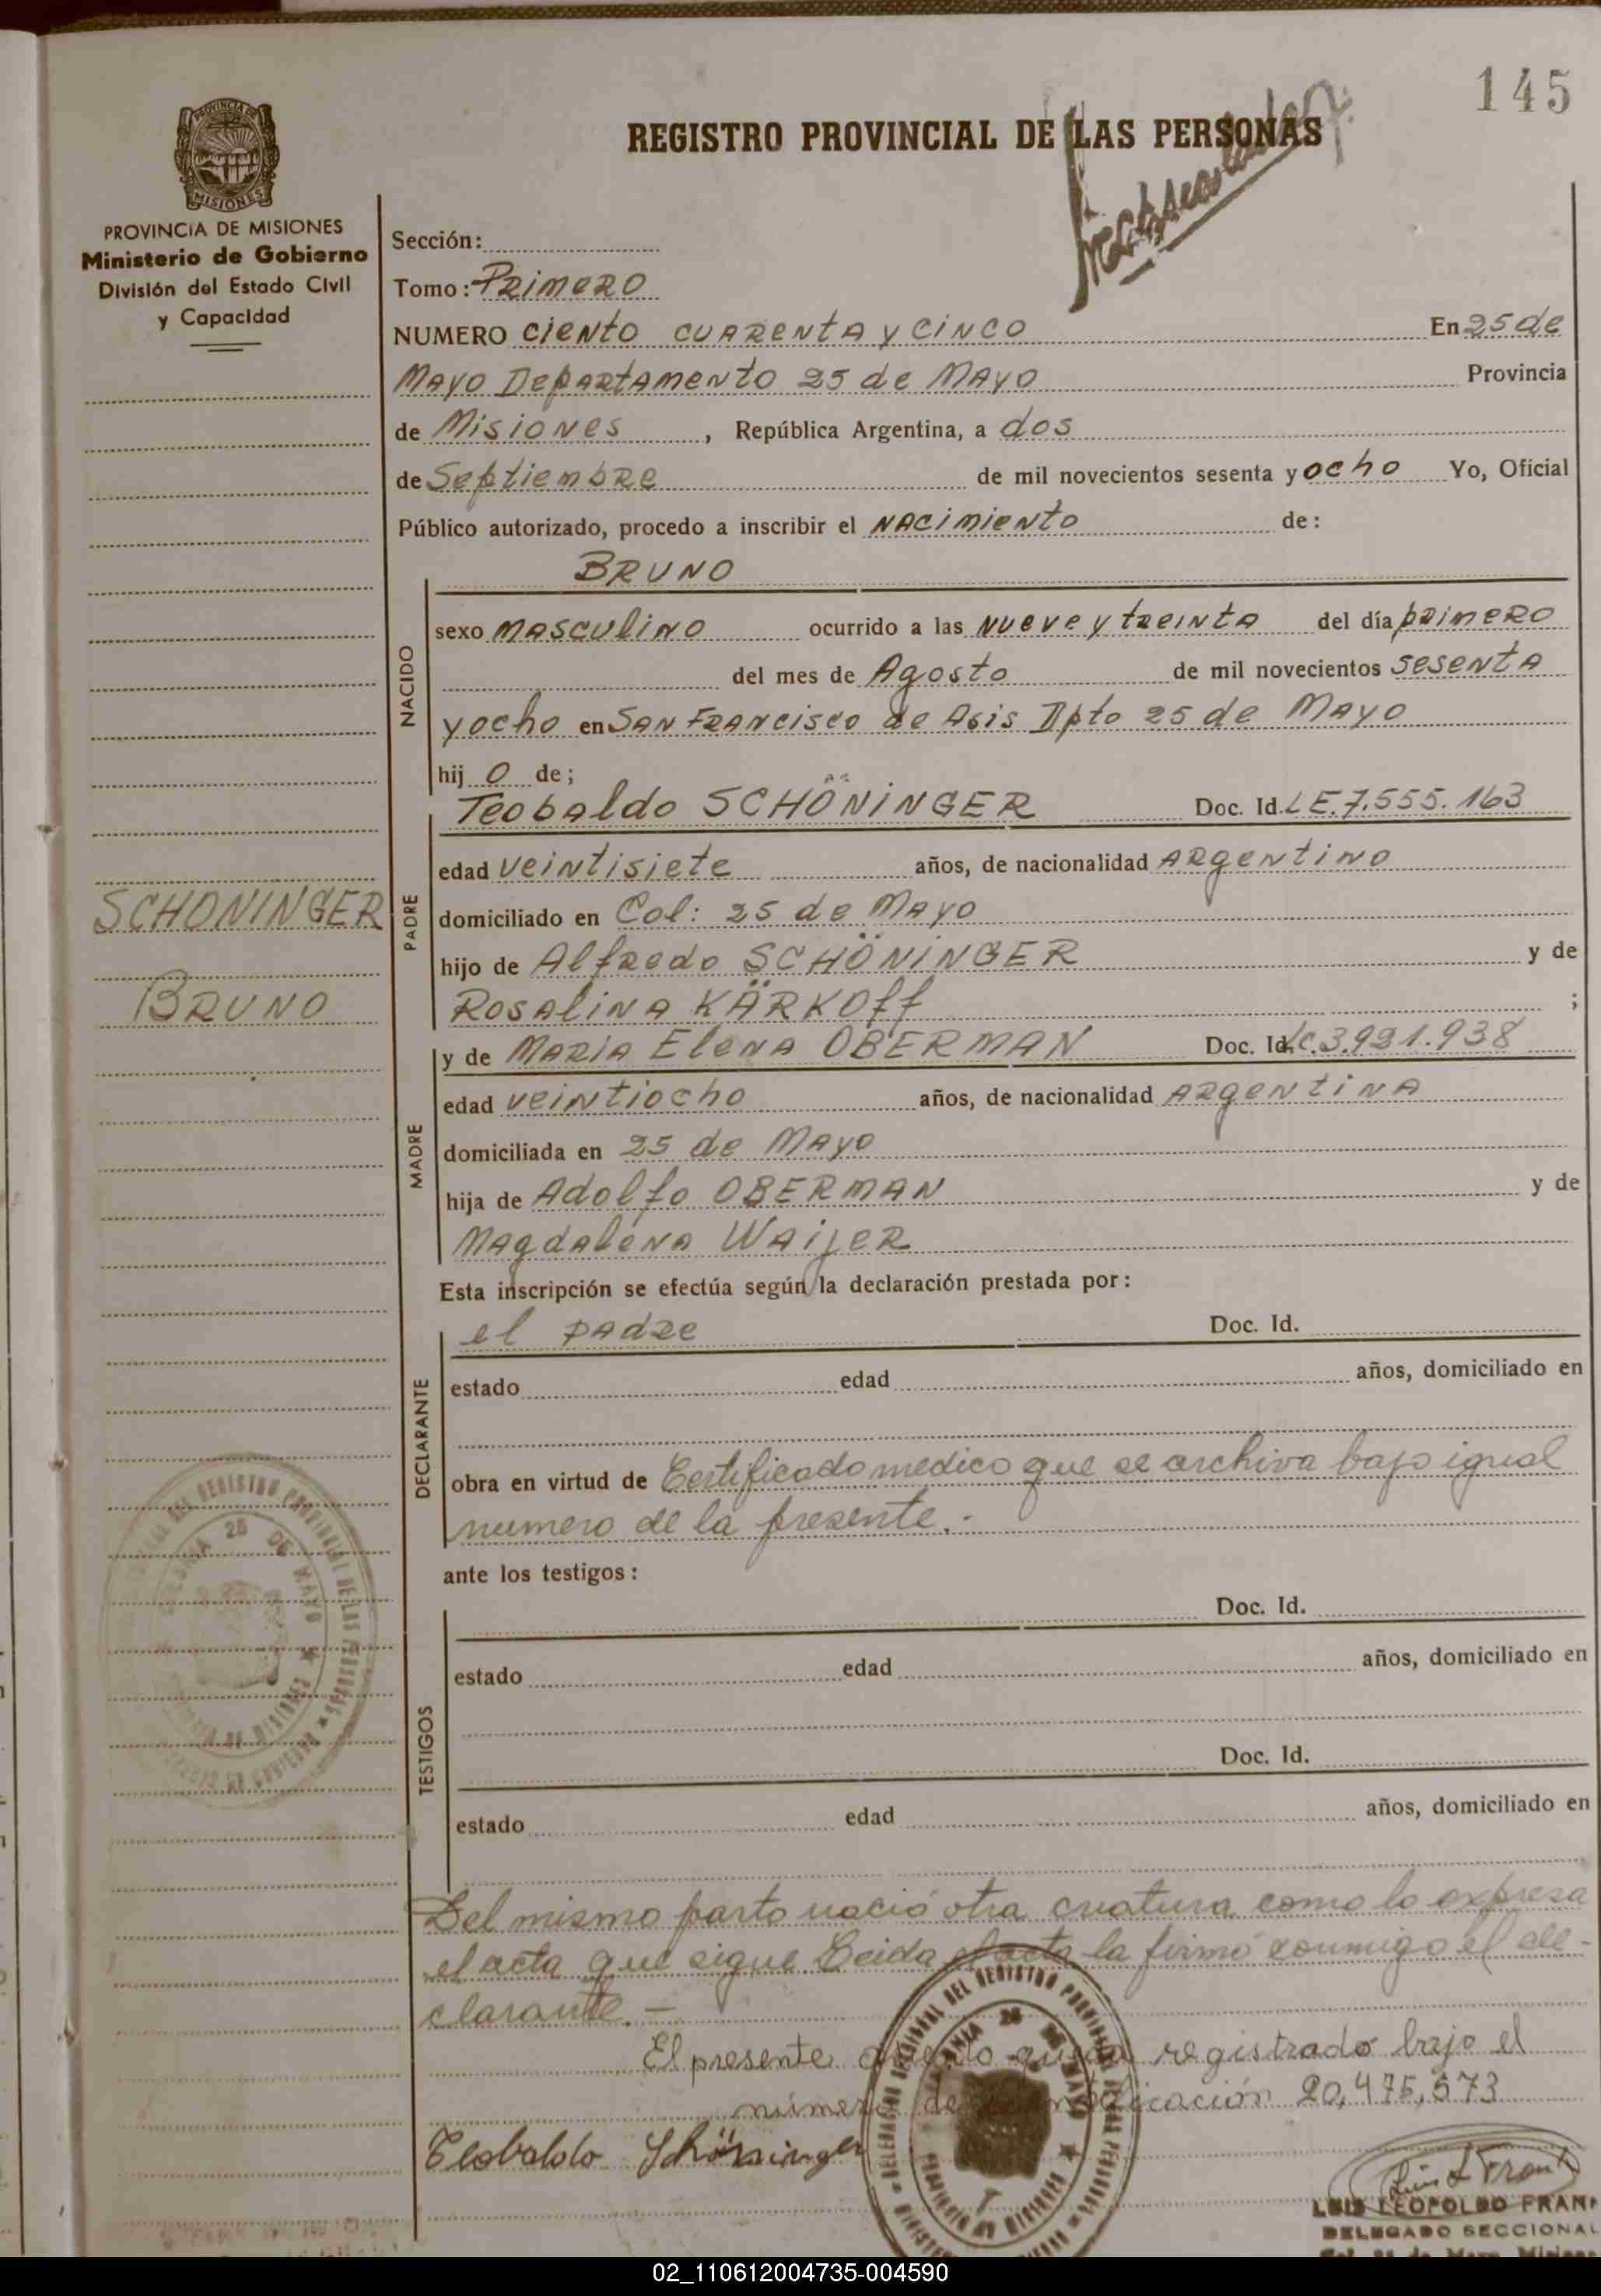 145
REGISTRO PROVINCIAL DE LAS PERSONAS
PROVINCIA DE MISIONES
Ministerio de Gobierno
División del Estado Civil
y Capacidad
Sección:
Tomo: Primero
NUMERO Ciento cuarenta y cinco En 25 de
Mayo Departamento 25 de Mayo Provincia
de Misiones, República Argentina, a dos
de Septiembre de mil novecientos sesenta y ocho Yo, Oficial
Público autorizado, procedo a inscribir el nacimiento de:
BRUNO
NACIDO
sexo masculino ocurrido a las nueve y treinta del día primero
del mes de Agosto de mil novecientos sesenta
y ocho en San Francisco de Asis Dpto 25 de Mayo
hij o de;
Teobaldo SCHÖNINGER Doc. Id. LE. 7.555.163
PADRE
edad veintisiete años, de nacionalidad Argentino
domiciliado en Col: 25 de Mayo
SCHONINGER
hijo de Alfredo SCHÖNINGER y de
BRUNO
Rosalina KÄRKOff ;
y de Maria Elena OBERMAN Doc. Id. LC. 3.921.938
MADRE
edad veintiocho años, de nacionalidad Argentina
domiciliada en 25 de Mayo
hija de Adolfo OBERMAN y de
Magdalena Waijer
Esta inscripción se efectúa según la declaración prestada por:
el padre Doc. Id.
DECLARANTE
estado edad años, domiciliado en
obra en virtud de Certificado medico que se archiva bajo igual
numero de la presente.-
ante los testigos:
Doc. Id.
TESTIGOS
estado edad años, domiciliado en
Doc. Id.
estado edad años, domiciliado en
Del mismo parto nació otra criatura como lo expresa
el acta que sigue Leida el acta la firmó conmigo el de-
clarante.-
El presente queda registrado bajo el
número de identificación 20,475,573
Teobaldo Schöninger
LUIS LEOPOLDO FRAN
DELEGADO SECCIONAL
Col. 25 de Mayo Misiones
02_110612004735-004590